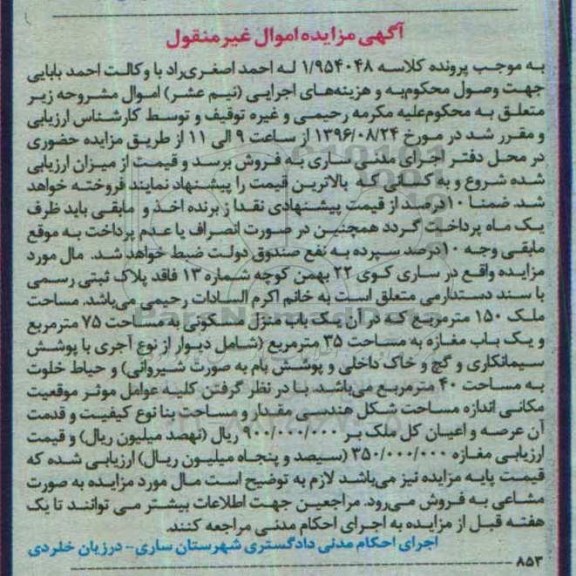 آگهی مزایده اموال غیر منقول
به موجب پرونده کلاسه ۱/۹۵۴۰۴۸ له احمد اصغری‌راد با وکالت احمد بابایی
جهت وصول محکوم‌به و هزینه‌های اجرایی (نیم عشر) اموال مشروحه زیر
متعلق به محکوم‌علیه مکرمه رحیمی و غیره توقیف و توسط کارشناس ارزیابی
و مقرر شد در مورخ ۱۳۹۶/۰۸/۲۴ از ساعت ۹ الی ۱۱ از طریق مزایده حضوری
در محل دفتر اجرای مدنی ساری به فروش برسد و قیمت از میزان ارزیابی
شده شروع و به کسانی که بالاترین قیمت را پیشنهاد نمایند فروخته خواهد
شد. ضمنا ۱۰درصد از قیمت پیشنهادی نقدا ز برنده اخذ و مابقی باید ظرف
یک ماه پرداخت گردد همچنین در صورت انصراف یا عدم پرداخت به موقع
مابقی وجه ۱۰درصد سپرده به نفع صندوق دولت ضبط خواهد شد. مال مورد
مزایده واقع در ساری کوی ۲۲ بهمن کوچه شماره ۱۳ فاقد پلاک ثبتی رسمی
با سند دستدارمی متعلق است به خانم اکرم السادات رحیمی می‌باشد. مساحت
ملک ۱۵۰ مترمربع که در آن یک باب منزل مسکونی به مساحت ۷۵ مترمربع
و یک باب مغازه به مساحت ۳۵ مترمربع (شامل دیوار از نوع آجری با پوشش
سیمانکاری و گچ و خاک داخلی و پوشش بام به صورت شیروانی) و حیاط خلوت
به مساحت ۴۰ مترمربع می‌باشد. با در نظر گرفتن کلیه عوامل موثر موقعیت
مکانی اندازه مساحت شکل هندسی مقدار و مساحت بنا نوع کیفیت و قدمت
آن عرصه و اعیان کل ملک بر ۹۰۰/۰۰۰/۰۰۰ ریال (نهصد میلیون ریال) و قیمت
ارزیابی مغازه ۳۵۰/۰۰۰/۰۰۰ (سیصد و پنجاه میلیون ریال) ارزیابی شده که
قیمت پایه مزایده نیز می‌باشد لازم به توضیح است مال مورد مزایده به صورت
مشاعی به فروش می‌رود. مراجعین جهت اطلاعات بیشتر می توانند تا یک
هفته قبل از مزایده به اجرای احکام مدنی مراجعه کنند.
اجرای احکام مدنی دادگستری شهرستان ساری-- درزیان خلردی
۸۵۳